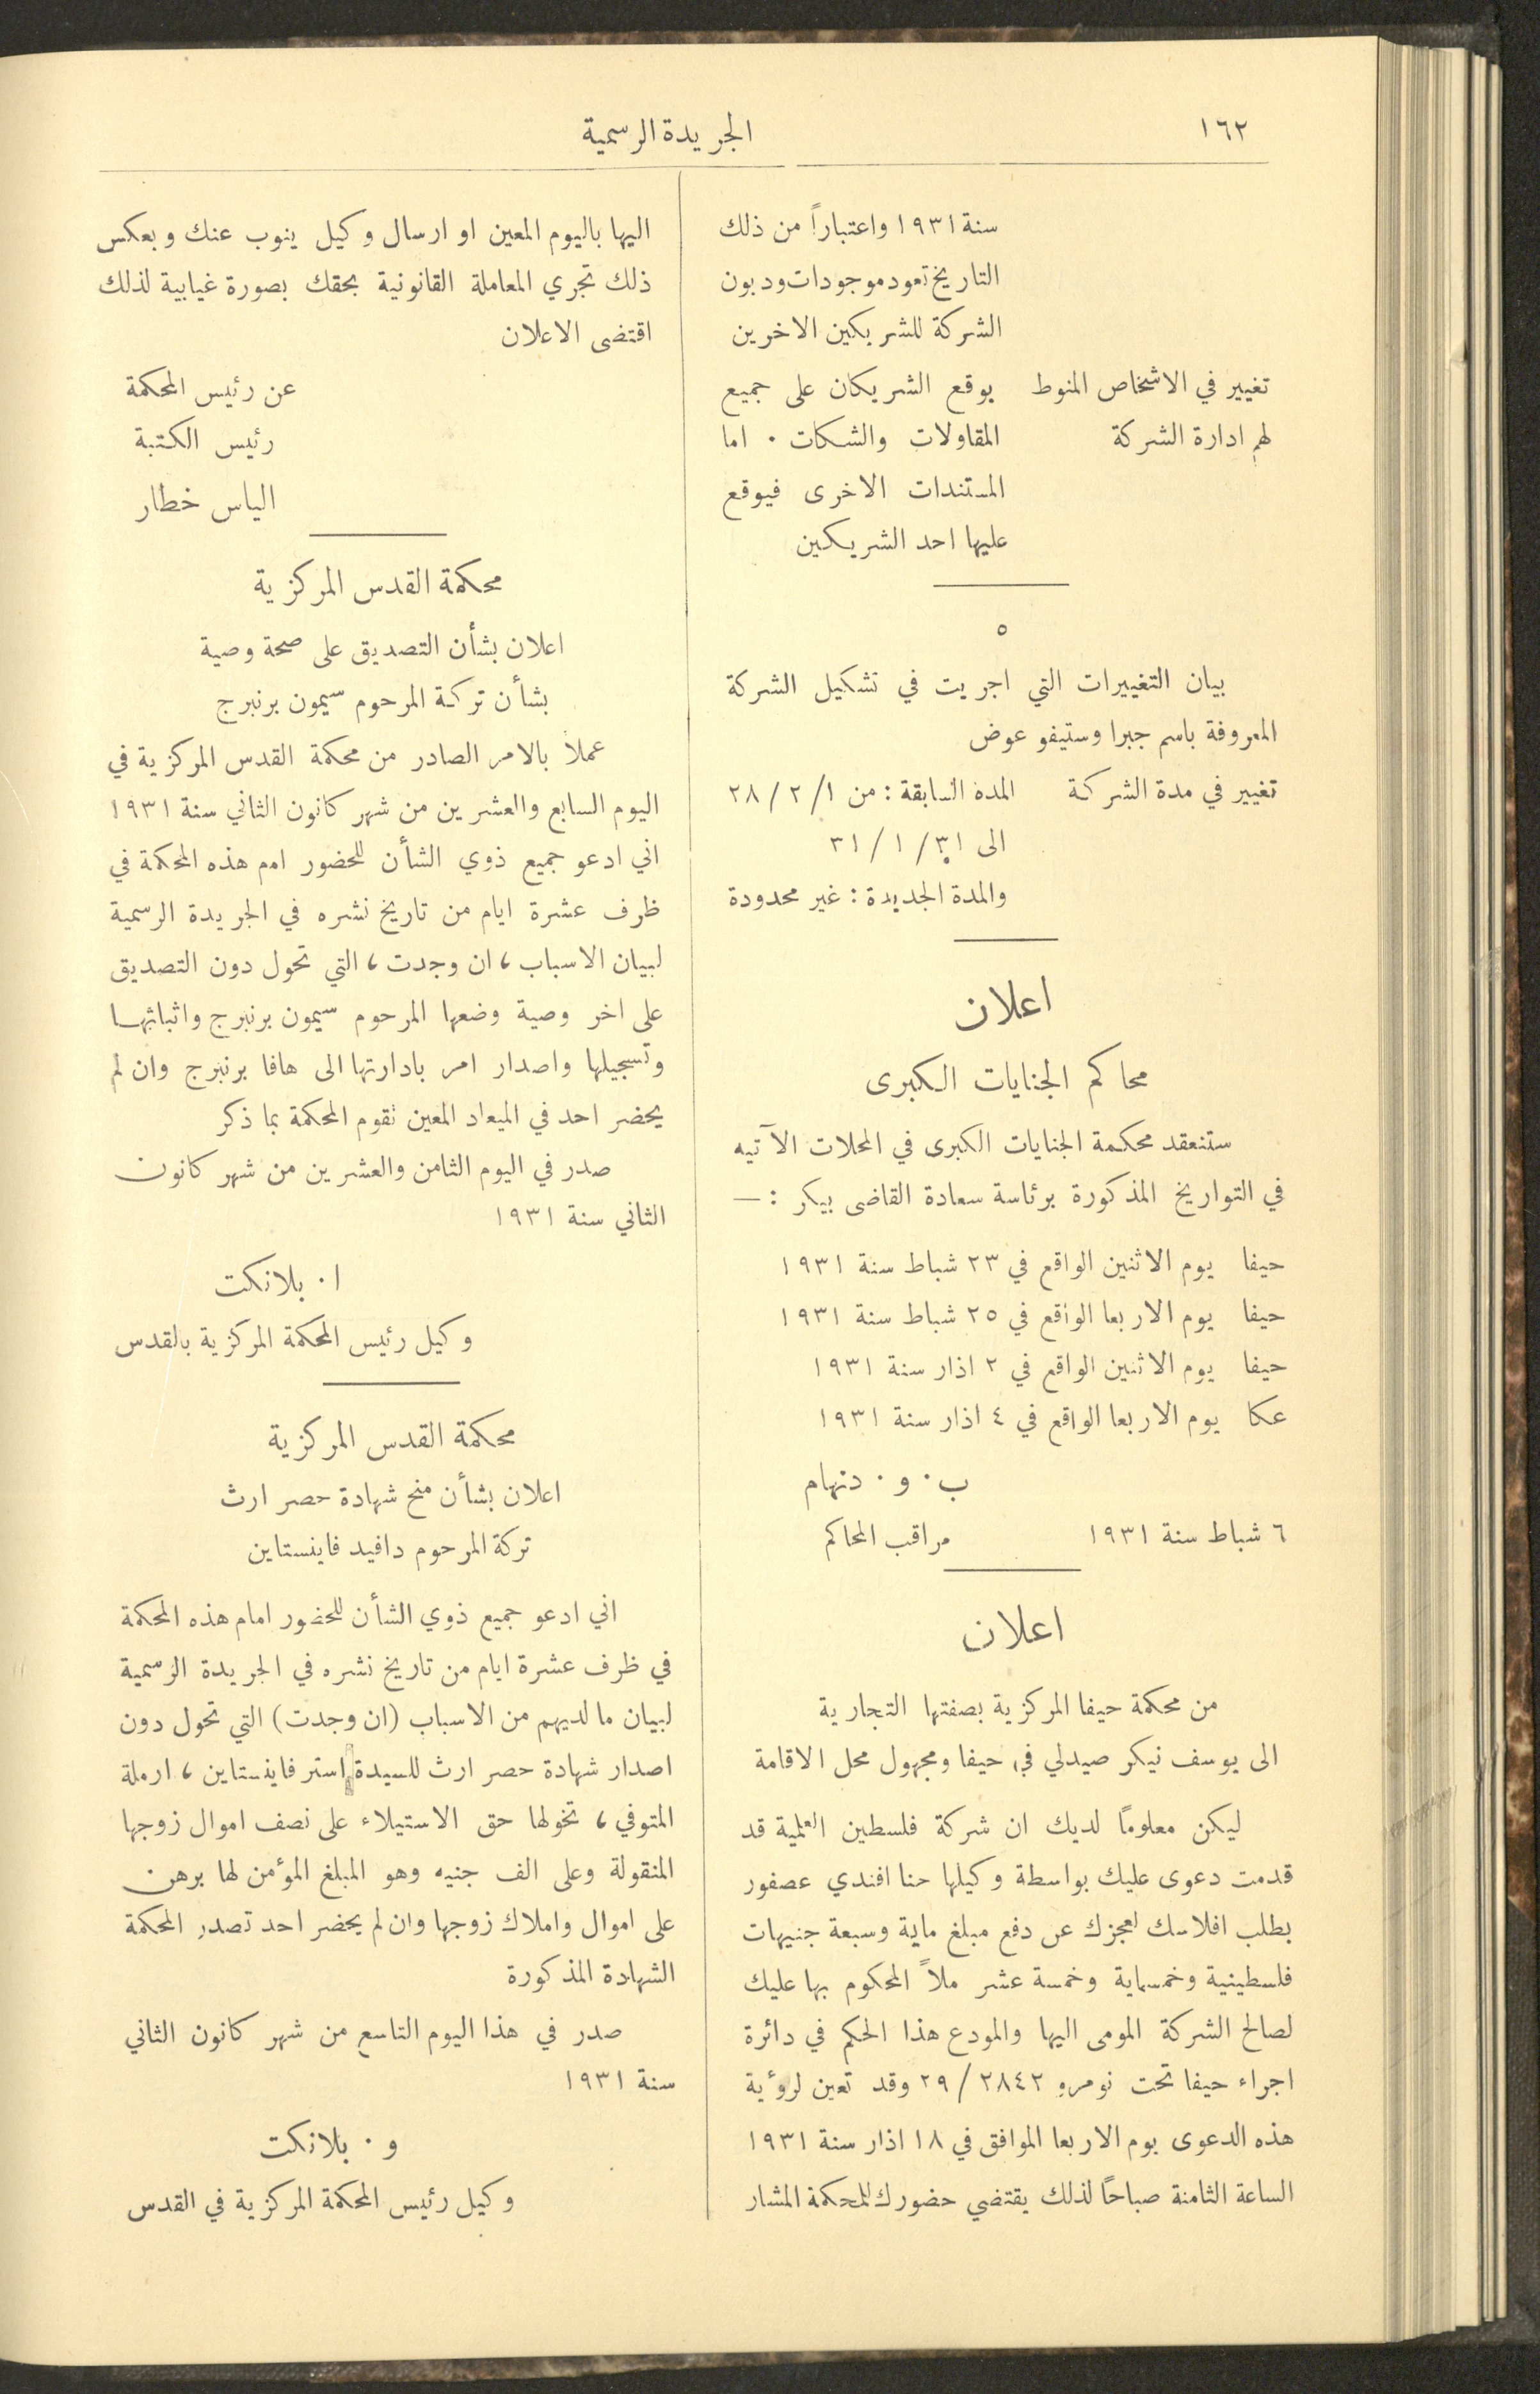 ١٦٢
الجريدة الرسمية
سنة ١٩٣١ واعتباراً من ذلك
التاريخ تعود موجودات وديون
الشركة للشريكين الاخرين
تغيير في الاشخاص المنوط يوقع الشريكان على جميع
لهم ادارة الشركة المقاولات والشكات . اما
المستندات الاخرى فيوقع
عليها احد الشريكين
٥
بيان التغييرات التي اجريت في تشكيل الشركة
المعروفة باسم جبرا وستيفو عوض
تغيير في مدة الشركة المدة السابقة : من ١/ ٢/ ٢٨
الى ٣١/ ١/ ٣١
والمدة الجديدة : غير محدودة
اعلان
محاكم الجنايات الكبرى
ستنعقد محكمة الجنايات الكبرى في المحلات الآتيه
في التواريخ المذكورة برئاسة سعادة القاضى بيكر : —
حيفا يوم الاثنين الواقع في ٢٣ شباط سنة ١٩٣١
حيفا يوم الاربعا الواقع في ٢٥ شباط سنة ١٩٣١
حيفا يوم الاثنين الواقع في ٢ اذار سنة ١٩٣١
عكا يوم الاربعا الواقع في ٤ اذار سنة ١٩٣١
ب . و . دنهام
٦ شباط سنة ١٩٣١ مراقب المحاكم
اعلان
من محكمة حيفا المركزية بصفتها التجارية
الى يوسف نيكر صيدلي في حيفا ومجهول محل الاقامة
ليكن معلوماً لديك ان شركة فلسطين العلمية قد
قدمت دعوى عليك بواسطة وكيلها حنا افندي عصفور
بطلب افلاسك لعجزك عن دفع مبلغ ماية وسبعة جنيهات
فلسطينية وخمسماية وخمسة عشر ملاً المحكوم بها عليك
لصالح الشركة المومى اليها والمودع هذا الحكم في دائرة
اجراء حيفا تحت نومرو ٢٨٤٢/ ٢٩ وقد تعين لرؤية
هذه الدعوى يوم الاربعا الموافق في ١٨ اذار سنة ١٩٣١
الساعة الثامنة صباحاً لذلك يقتضي حضورك للمحكمة المشار
اليها باليوم المعين او ارسال وكيل ينوب عنك وبعكس
ذلك تجري المعاملة القانونية بحقك بصورة غيابية لذلك
اقتضى الاعلان
عن رئيس المحكمة
رئيس الكتبة
الياس خطار
محكمة القدس المركزية
اعلان بشأن التصديق على صحة وصية
بشأن تركة المرحوم سيمون برنبرج
عملا بالامر الصادر من محكمة القدس المركزية في
اليوم السابع والعشرين من شهر كانون الثاني سنة ١٩٣١
اني ادعو جميع ذوي الشأن للحضور امم هذه المحكمة في
ظرف عشرة ايام من تاريخ نشره في الجريدة الرسمية
لبيان الاسباب ، ان وجدت ، التي تحول دون التصديق
على اخر وصية وضعها المرحوم سيمون برنبرج واثباتها
وتسجيلها واصدار امر بادارتها الى هافا برنبرج وان لم
يحضر احد في الميعاد المعين تقوم المحكمة بما ذكر
صدر في اليوم الثامن والعشرين من شهر كانون
الثاني سنة ١٩٣١
ا . بلانكت
وكيل رئيس المحكمة المركزية بالقدس
محكمة القدس المركزية
اعلان بشأن منح شهادة حصر ارث
تركة المرحوم دافيد فاينستاين
اني ادعو جميع ذوي الشأن للحضور امام هذه المحكمة
في ظرف عشرة ايام من تاريخ نشره في الجريدة الرسمية
لبيان ما لديهم من الاسباب (ان وجدت) التي تحول دون
اصدار شهادة حصر ارث للسيدة استر فاينستاين ، ارملة
المتوفي ، تخولها حق الاستيلاء على نصف اموال زوجها
المنقولة وعلى الف جنيه وهو المبلغ المؤمن لها برهن
على اموال واملاك زوجها وان لم يحضر احد تصدر المحكمة
الشهادة المذكورة
صدر في هذا اليوم التاسع من شهر كانون الثاني
سنة ١٩٣١
و . بلانكت
وكيل رئيس المحكمة المركزية في القدس